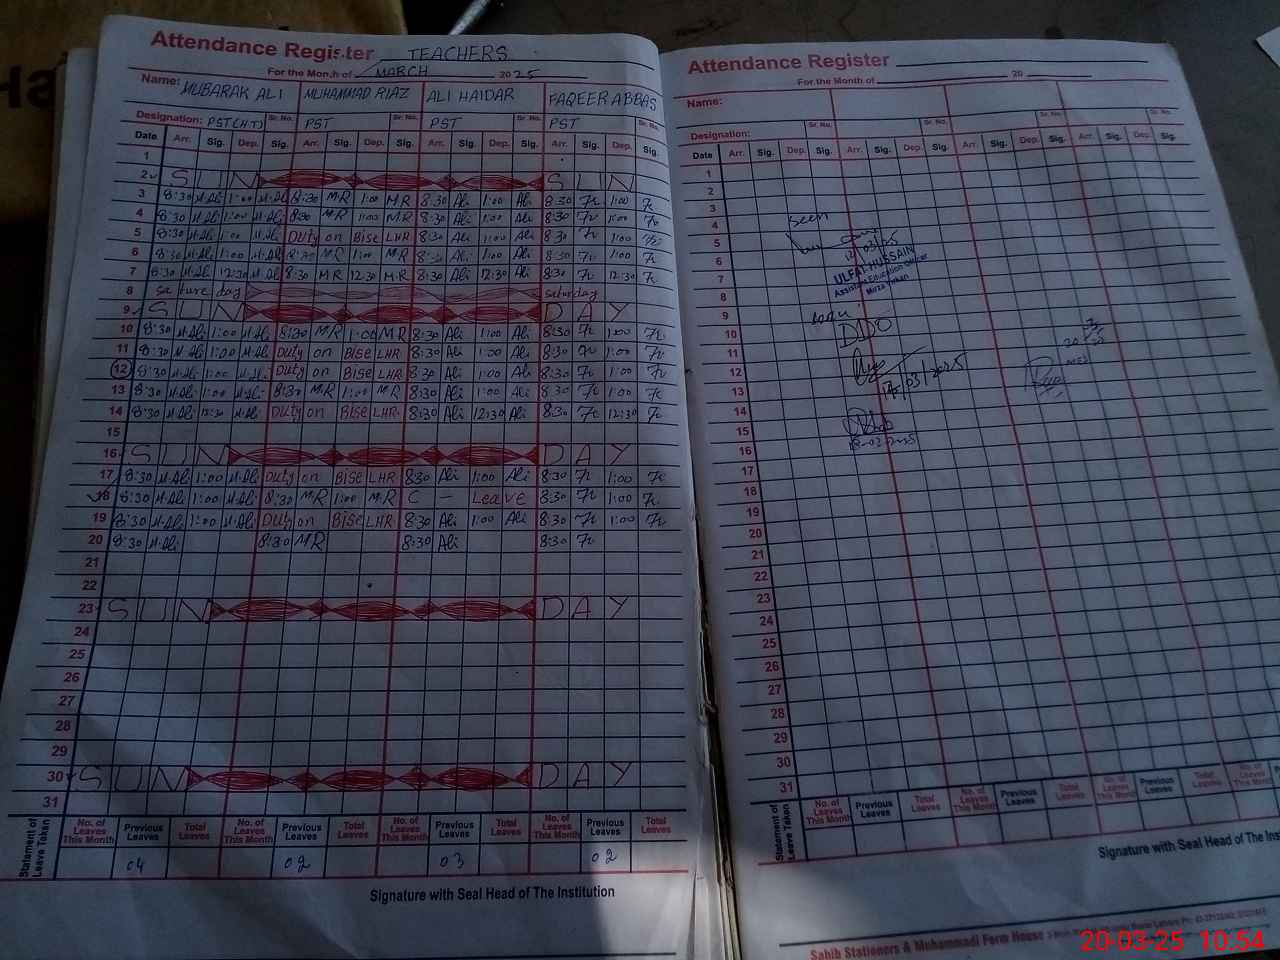 Attendance Register TEACHERS
For the Month of MARCH 2025
Name: MUBARAK ALI MUHAMMAD RIAZ ALI HAIDAR FAQEER ABBAS
Designation: PST(H.T) Sr. No. PST Sr. No. PST Sr. No. PST
Date Arr. Sig. Dep. Sig. Arr. Sig. Dep. Sig. Arr. Sig. Dep. Sig. Arr. Sig. Dep. Sig.
1
2 SUN SUN
3 8:30 M.Ali 1:00 M.Ali 8:30 MR 1:00 MR 8:30 Ali 1:00 Ali 8:30 1:00
4 8:30 M.Ali 1:00 M.Ali 8:30 MR 1:00 MR 8:30 Ali 1:00 Ali 8:30 1:00
5 8:30 M.Ali 1:00 M.Ali Duty on Bise LHR 8:30 Ali 1:00 Ali 8:30 1:00
6 8:30 M.Ali 1:00 M.Ali 8:30 MR 1:00 MR 8:30 Ali 1:00 Ali 8:30 1:00
7 8:30 M.Ali 12:30 M.Ali 8:30 MR 12:30 MR 8:30 Ali 12:30 Ali 8:30 12:30
8 sature day saturday
9 SUN DAY
10 8:30 M.Ali 1:00 M.Ali 8:30 MR 1:00 MR 8:30 Ali 1:00 Ali 8:30 1:00
11 8:30 M.Ali 1:00 M.Ali Duty on Bise LHR 8:30 Ali 1:00 Ali 8:30 1:00
12 8:30 M.Ali 1:00 M.Ali Duty on Bise LHR 8:30 Ali 1:00 Ali 8:30 1:00
13 8:30 M.Ali 1:00 M.Ali 8:30 MR 1:00 MR 8:30 Ali 1:00 Ali 8:30 1:00
14 8:30 M.Ali 12:30 M.Ali Duty on Bise LHR 8:30 Ali 12:30 Ali 8:30 12:30
15
16 SUN DAY
17 8:30 M.Ali 1:00 M.Ali Duty on Bise LHR 8:30 Ali 1:00 Ali 8:30 1:00
18 8:30 M.Ali 1:00 M.Ali 8:30 MR 1:00 MR C - Leave 8:30 1:00
19 8:30 M.Ali 1:00 M.Ali Duty on Bise LHR 8:30 Ali 1:00 Ali 8:30 1:00
20 8:30 M.Ali 8:30 MR 8:30 Ali 8:30
21
22
23 SUN DAY
24
25
26
27
28
29
30 SUN DAY
31
Statement of Leave Taken
No. of Leaves This Month Previous Leaves Total Leaves No. of Leaves This Month Previous Leaves Total Leaves No. of Leaves This Month Previous Leaves Total Leaves No. of Leaves This Month Previous Leaves Total Leaves
04 02 03 02
Signature with Seal Head of The Institution
Attendance Register
For the Month of 20
Name:
Designation: Sr. No. Sr. No. Sr. No.
Date Arr. Sig. Dep. Sig. Arr. Sig. Dep. Sig. Arr. Sig. Dep. Sig. Arr. Sig. Dep. Sig.
1
2
3
4 Seen
5
6 ULFAT HUSSAIN
7 Assistant Education Officer
8
9
10 DDO
11
12 14/03/2025
13
14
15
16
17
18
19
20
21
22
23
24
25
26
27
28
29
30
31
Statement of Leave Taken
No. of Leaves This Month Previous Leaves Total Leaves No. of Leaves This Month Previous Leaves Total Leaves No. of Leaves This Month Previous Leaves Total Leaves No. of Leaves This Month
Signature with Seal Head of The
Sahib Stationers & Muhammadi Form House
20-03-25 10:54